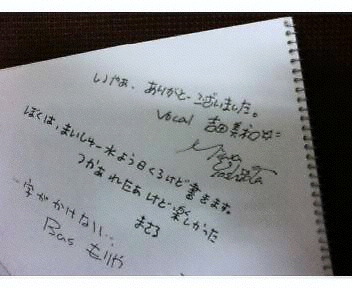 いやぁ、ありがとーございました。
Vocal 吉田美和
Miwa Yoshida
ぼくは、まいしゅー水よう日くろけど書きます。
つかれたあけど、楽しかった
まさる
字がかけない…
Bas もりや